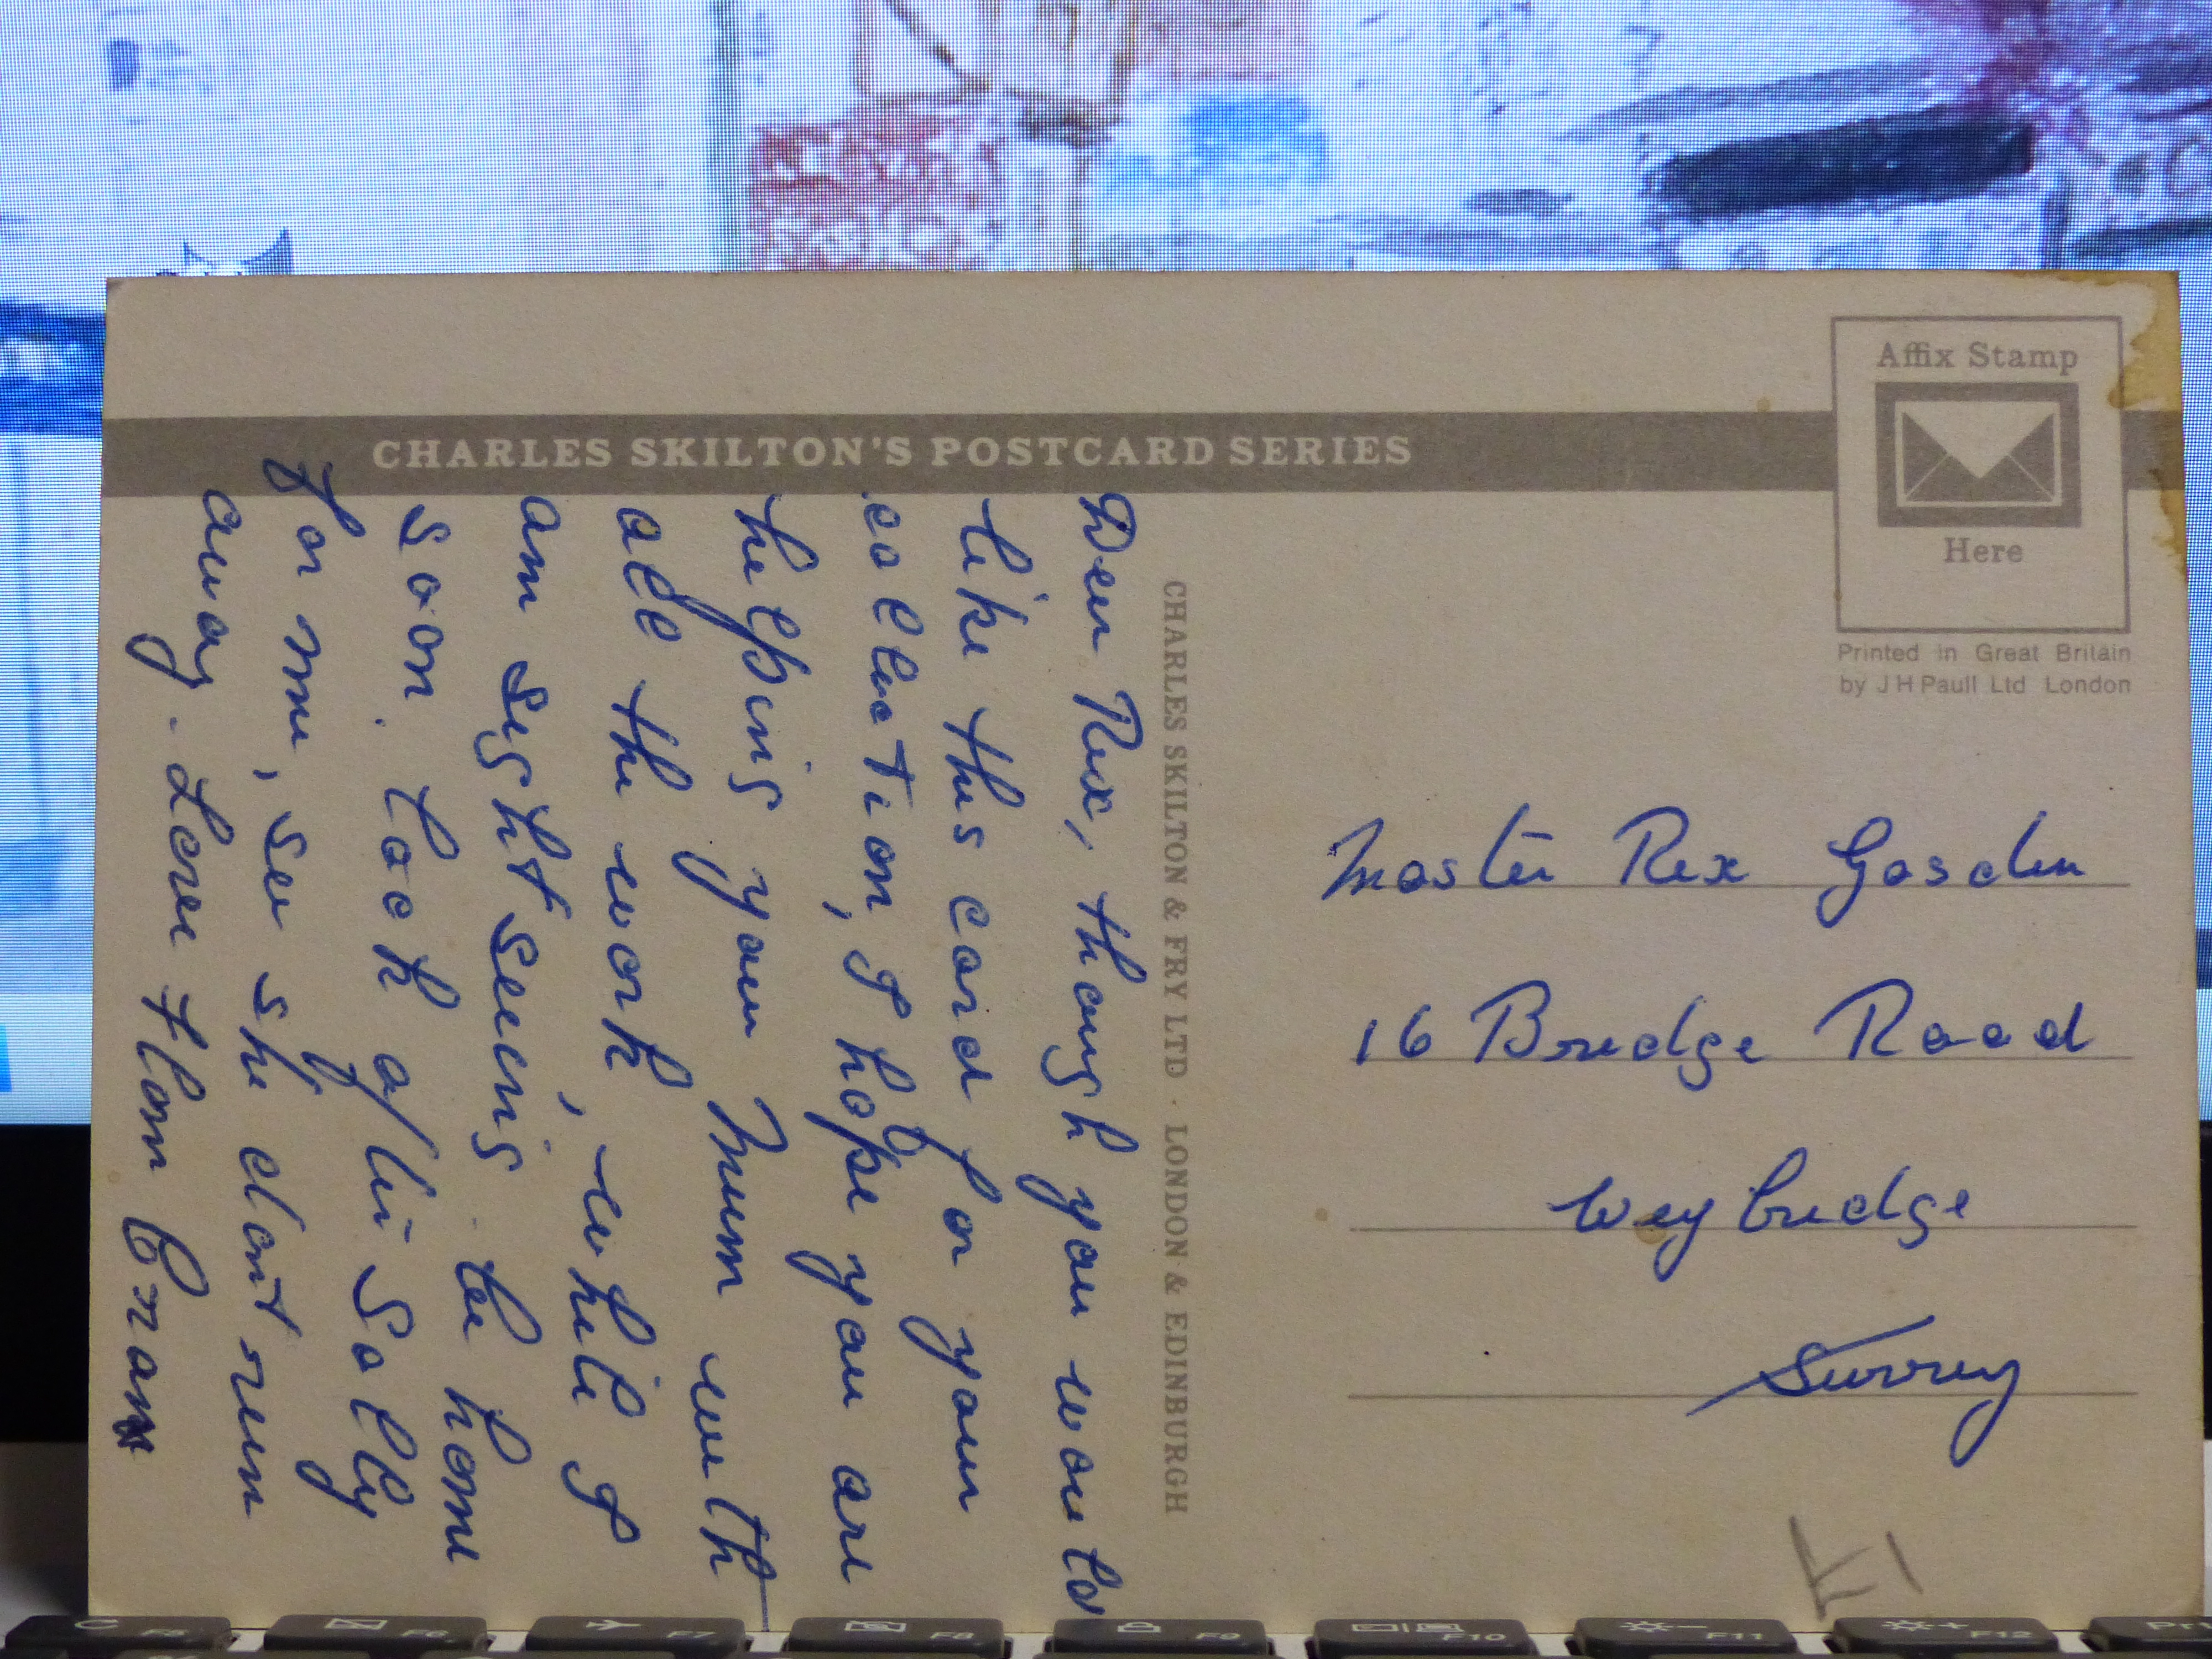 CHARLES SKILTON'S POSTCARD SERIES
Affix Stamp
Here
Printed in Great Britain
by J H Paull Ltd London
CHARLES SKILTON & FRY LTD · LONDON & EDINBURGH
Dear Rex, though you would
like this card for your
collection, I hope you are
helping your Mum with
all the work, while I
am sight seeing be home
soon. look after Solly
for me, see she dont run
away. Love from Bram
Master Rex Gosden
16 Bridge Road
Weybridge
Surrey
F5
F6
F7
F8
F9
F10
F11
F12